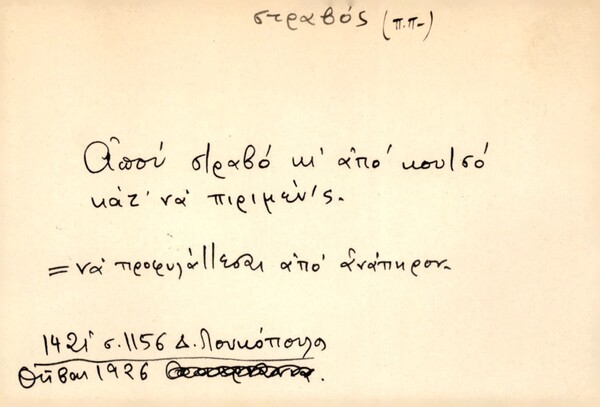 στραβός (π.π-)
Ἀπού στραβό κι' ἀπό κουτσό
κάτ' νά πιριμέν'ς.
= νά προφυλάττεσαι ἀπό ἀνάπηρον.
1421 σ. 1156 Δ. Λουκόπουλος
Θῆβαι 1926